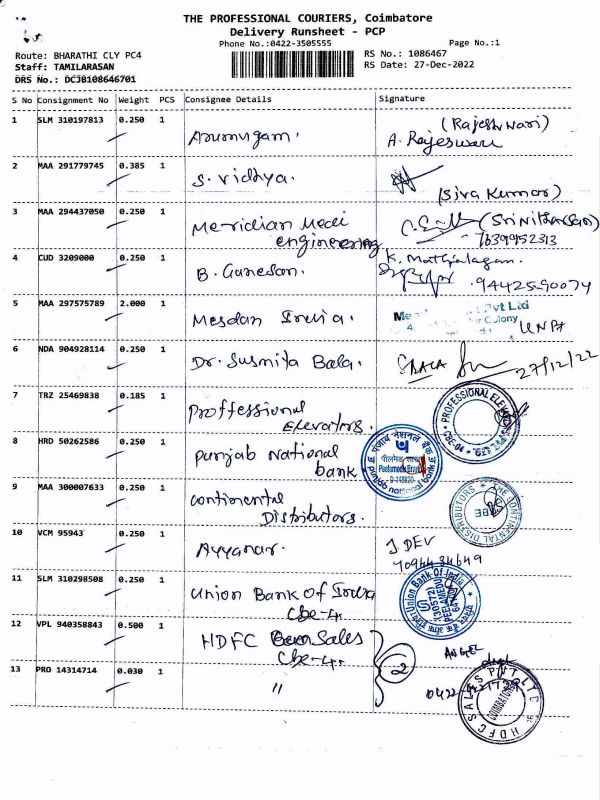 THE PROFESSIONAL COURIERS, Coimbatore
Delivery Runsheet - PCP
Phone No.:0422-3505555 Page No.:1
Route: BHARATHI CLY PC4 RS No.: 1086467
Staff: TAMILARASAN RS Date: 27-Dec-2022
DRS No.: DCJB108646701
S No Consignment No Weight PCS Consignee Details Signature
1 SLM 310197813 0.250 1 (Rajeshwari)
Arumugam. A. Rajeswari
2 MAA 291779745 0.385 1
S. Vidhya.
(Siva Kumar)
3 MAA 294437050 0.250 1
Meridian Medi
engineering 7639952313
4 CUD 3209000 0.250 1 K. Mathialagan.
B. Ganesan. 94425-90074
5 MAA 297575789 2.000 1 Pvt Ltd
Mesdan India. Colony
6 NDA 904928114 0.250 1
Dr. Susmita Bala. 27/12/22
7 TRZ 25469838 0.185 1
Proffessional
Elevators.
PROFESSIONAL
CBE-04
8 HRD 50262586 0.250 1
Punjab National
bank
पंजाब नैशनल बैंक
Peelamedu Branch
punjab national bank
9 MAA 300007633 0.250 1
Continental
Distributors.
THE CONTINENTAL DISTRIBUTORS
CBE
10 VCM 95943 0.250 1
Ayyanar. J DEV
11 SLM 310298508 0.250 1
Union Bank Of India
Cbe-4.
Union Bank Of India
12 VPL 940358843 0.500 1
HDFC Sales
Cbe-4. 2 ANGEL
13 PRO 14314714 0.030 1
"
HDFC SALES PVT LTD
COIMBATORE